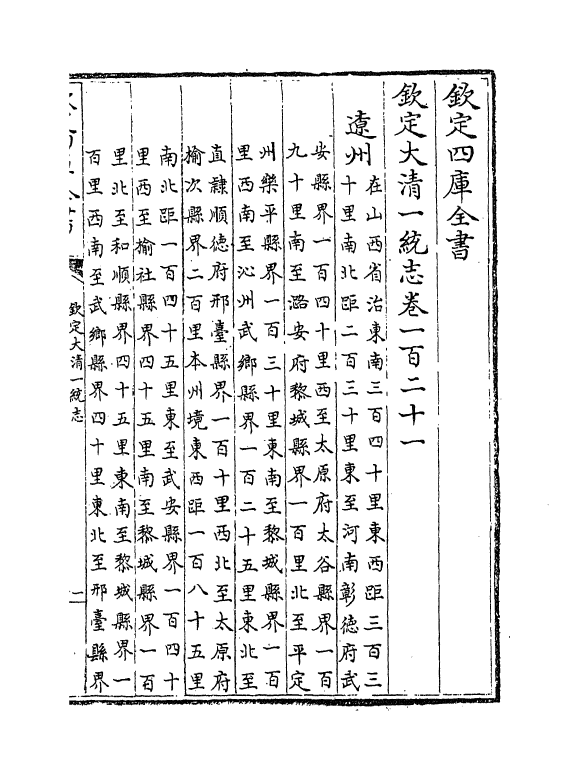 欽定四庫全書
欽定大清一統志卷一百二十一
遼州
在山西省治東南三百四十里東西距三百三
十里南北距二百三十里東至河南彰德府武
安縣界一百四十里西至太原府太谷縣界一百
九十里南至潞安府黎城縣界一百里北至平定
州樂平縣界一百三十里東南至黎城縣界一百
里西南至沁州武鄉縣界一百二十五里東北至
直隸順德府邢臺縣界一百十里西北至太原府
榆次縣界二百里本州境東西距一百八十五里
南北距一百四十五里東至武安縣界一百四十
里西至榆社縣界四十五里南至黎城縣界一百
里北至和順縣界四十五里東南至黎城縣界一
百里西南至武鄉縣界四十里東北至邢臺縣界
欽定大清一統志
一